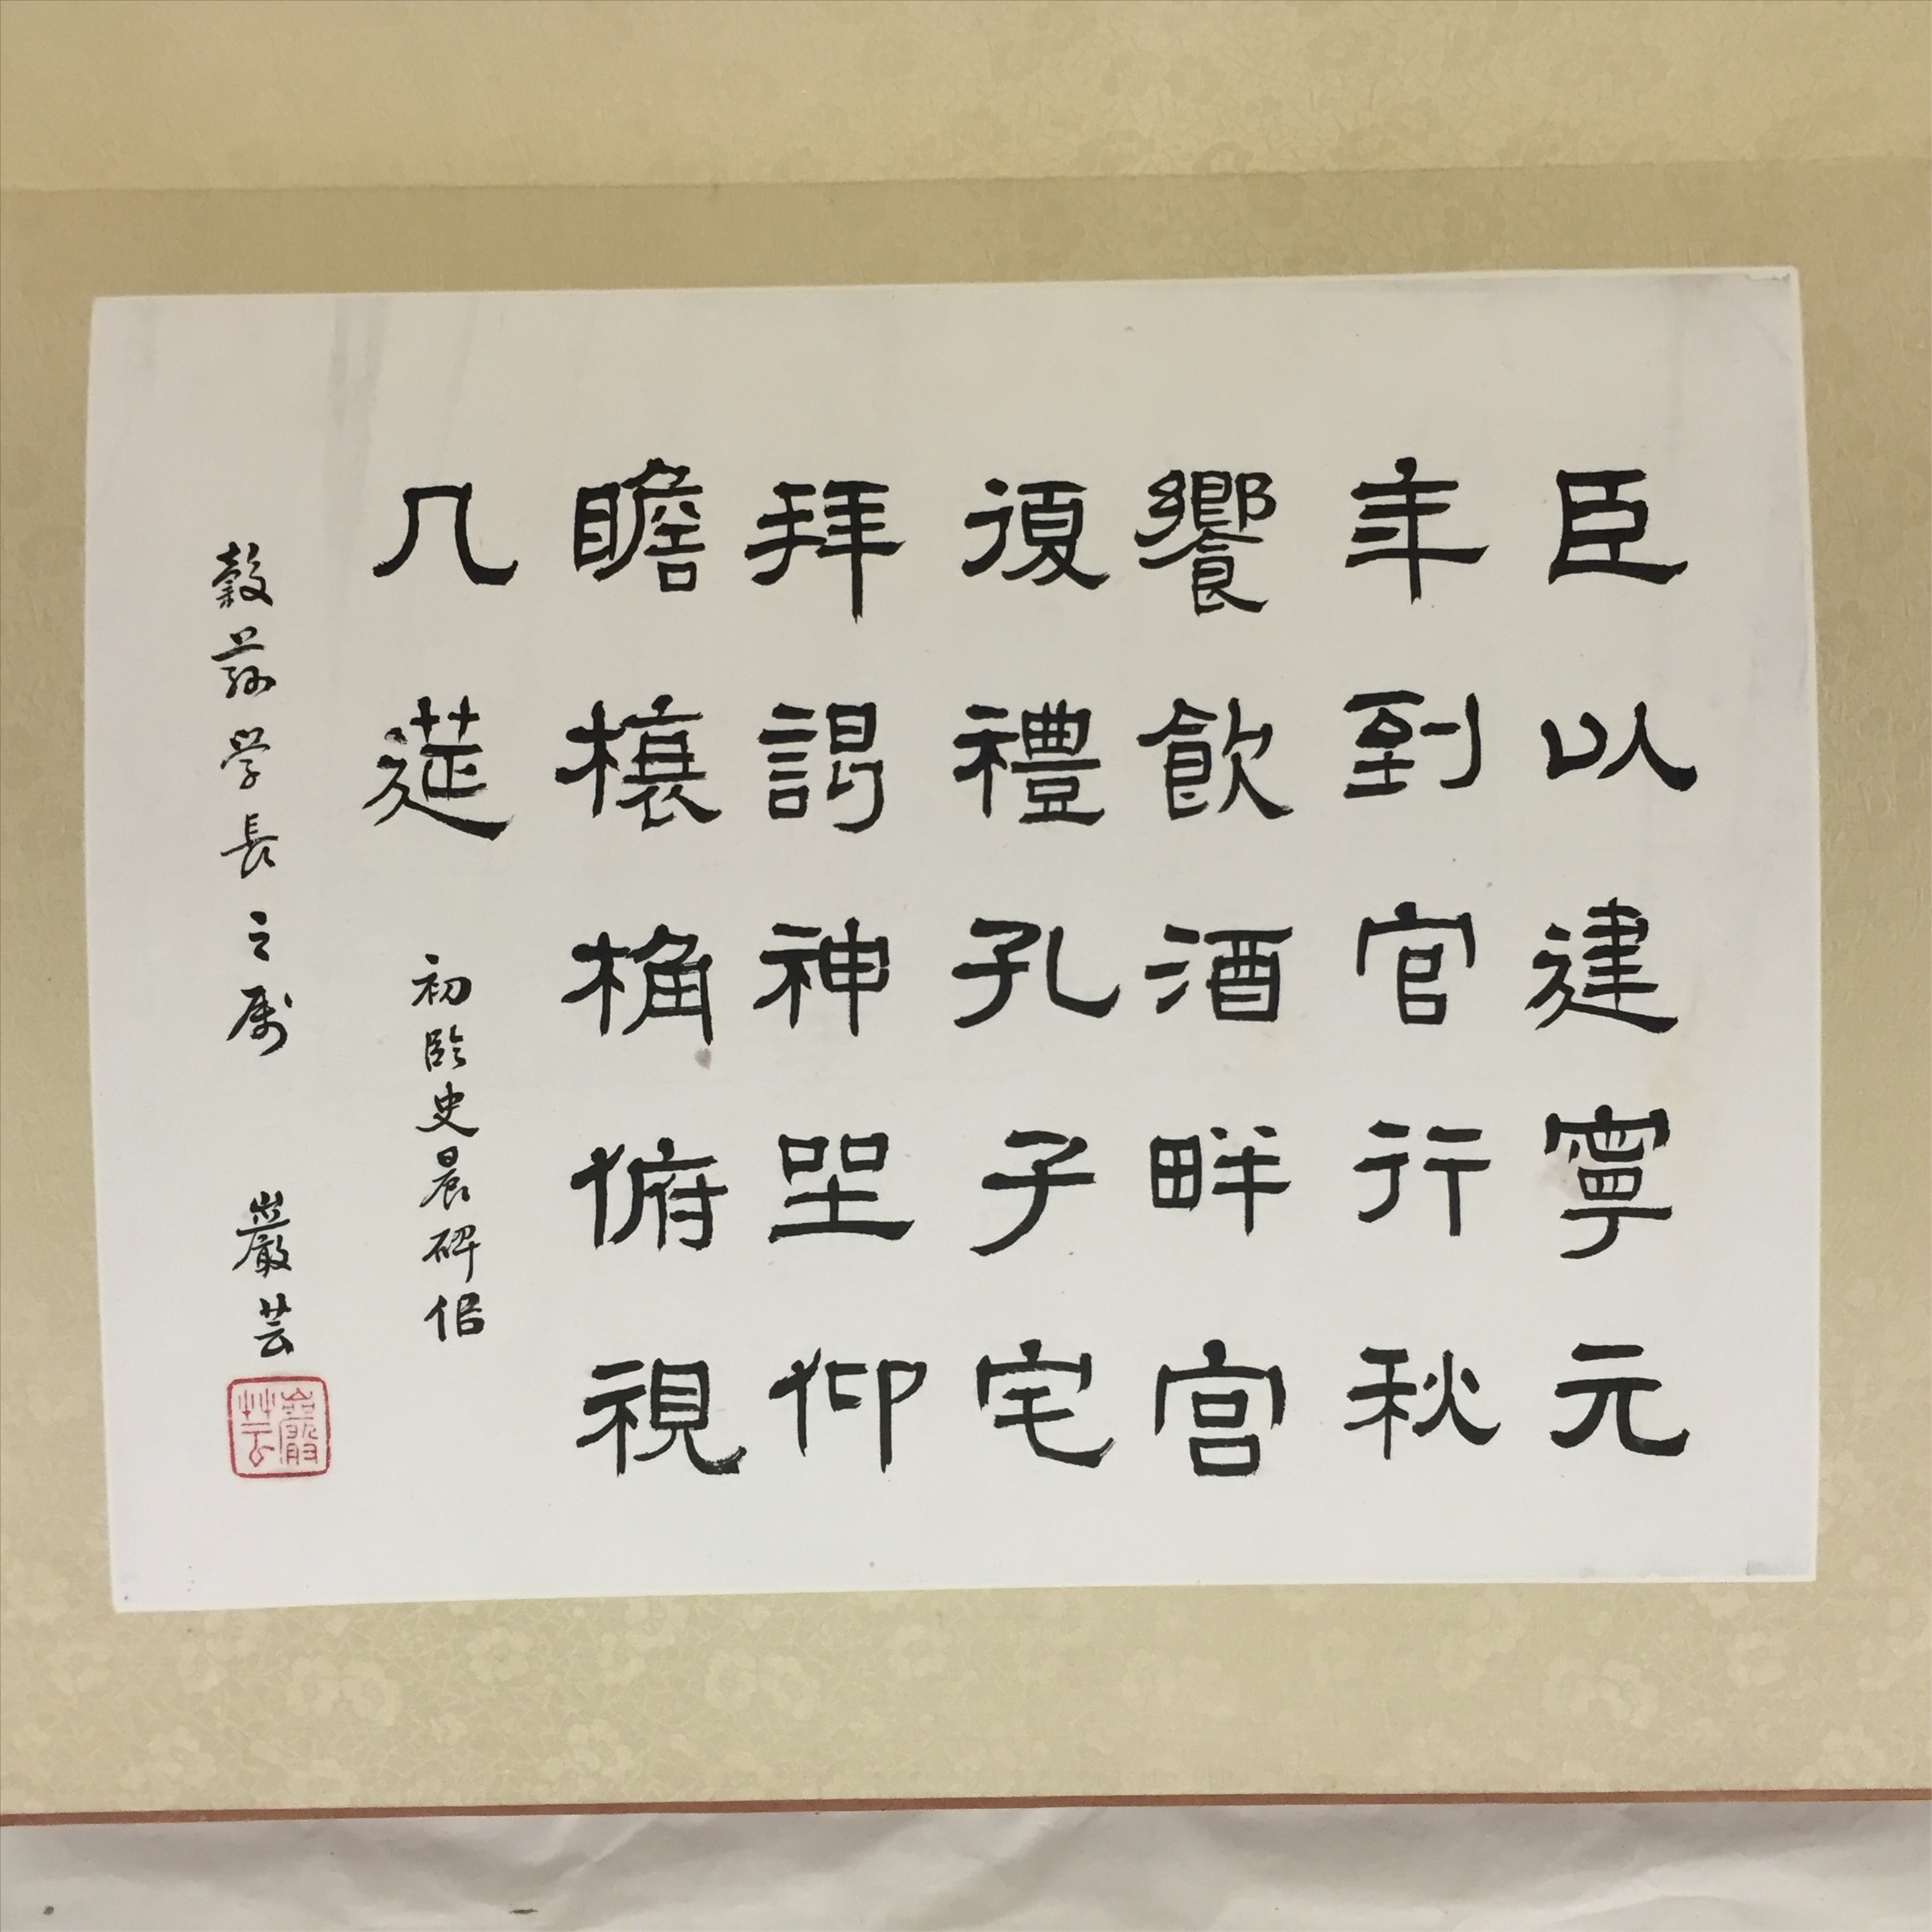 臣以建寧元
年到官行秋
饗飲酒畔宮
復禮孔子宅
拜謁神坐仰
瞻榱桷俯視
几筵
初臨史晨碑侣
穀蓀学長之属
巖芸
巖芸